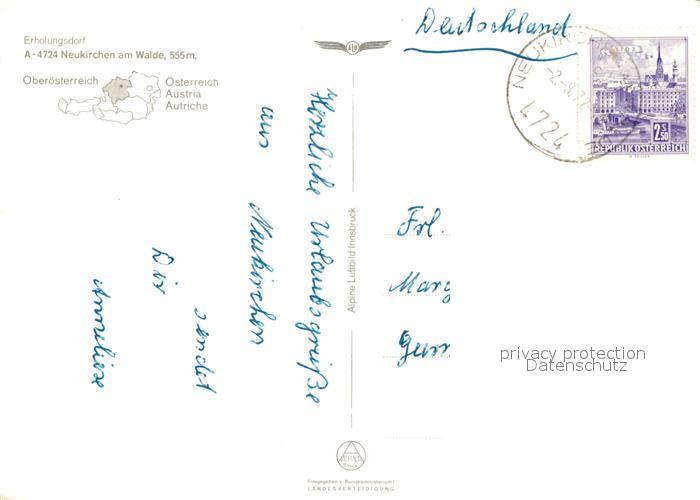 Erholungsdorf
A-4724 Neukirchen am Walde, 555m,
Oberösterreich
Österreich
Austria
Autriche
Herzliche Urlaubsgrüße
aus Neukirchen
sendet
Dir
Anneliese
Alpine Luftbild Innsbruck
ALPINA
Druck
Freigegeben v. Bundesministerium f.
LANDESVERTEIDIGUNG
Deutschland
NEUKIRCHEN
4724
2 S 50
REPUBLIK ÖSTERREICH
Frl.
Marg
privacy protection
Datenschutz